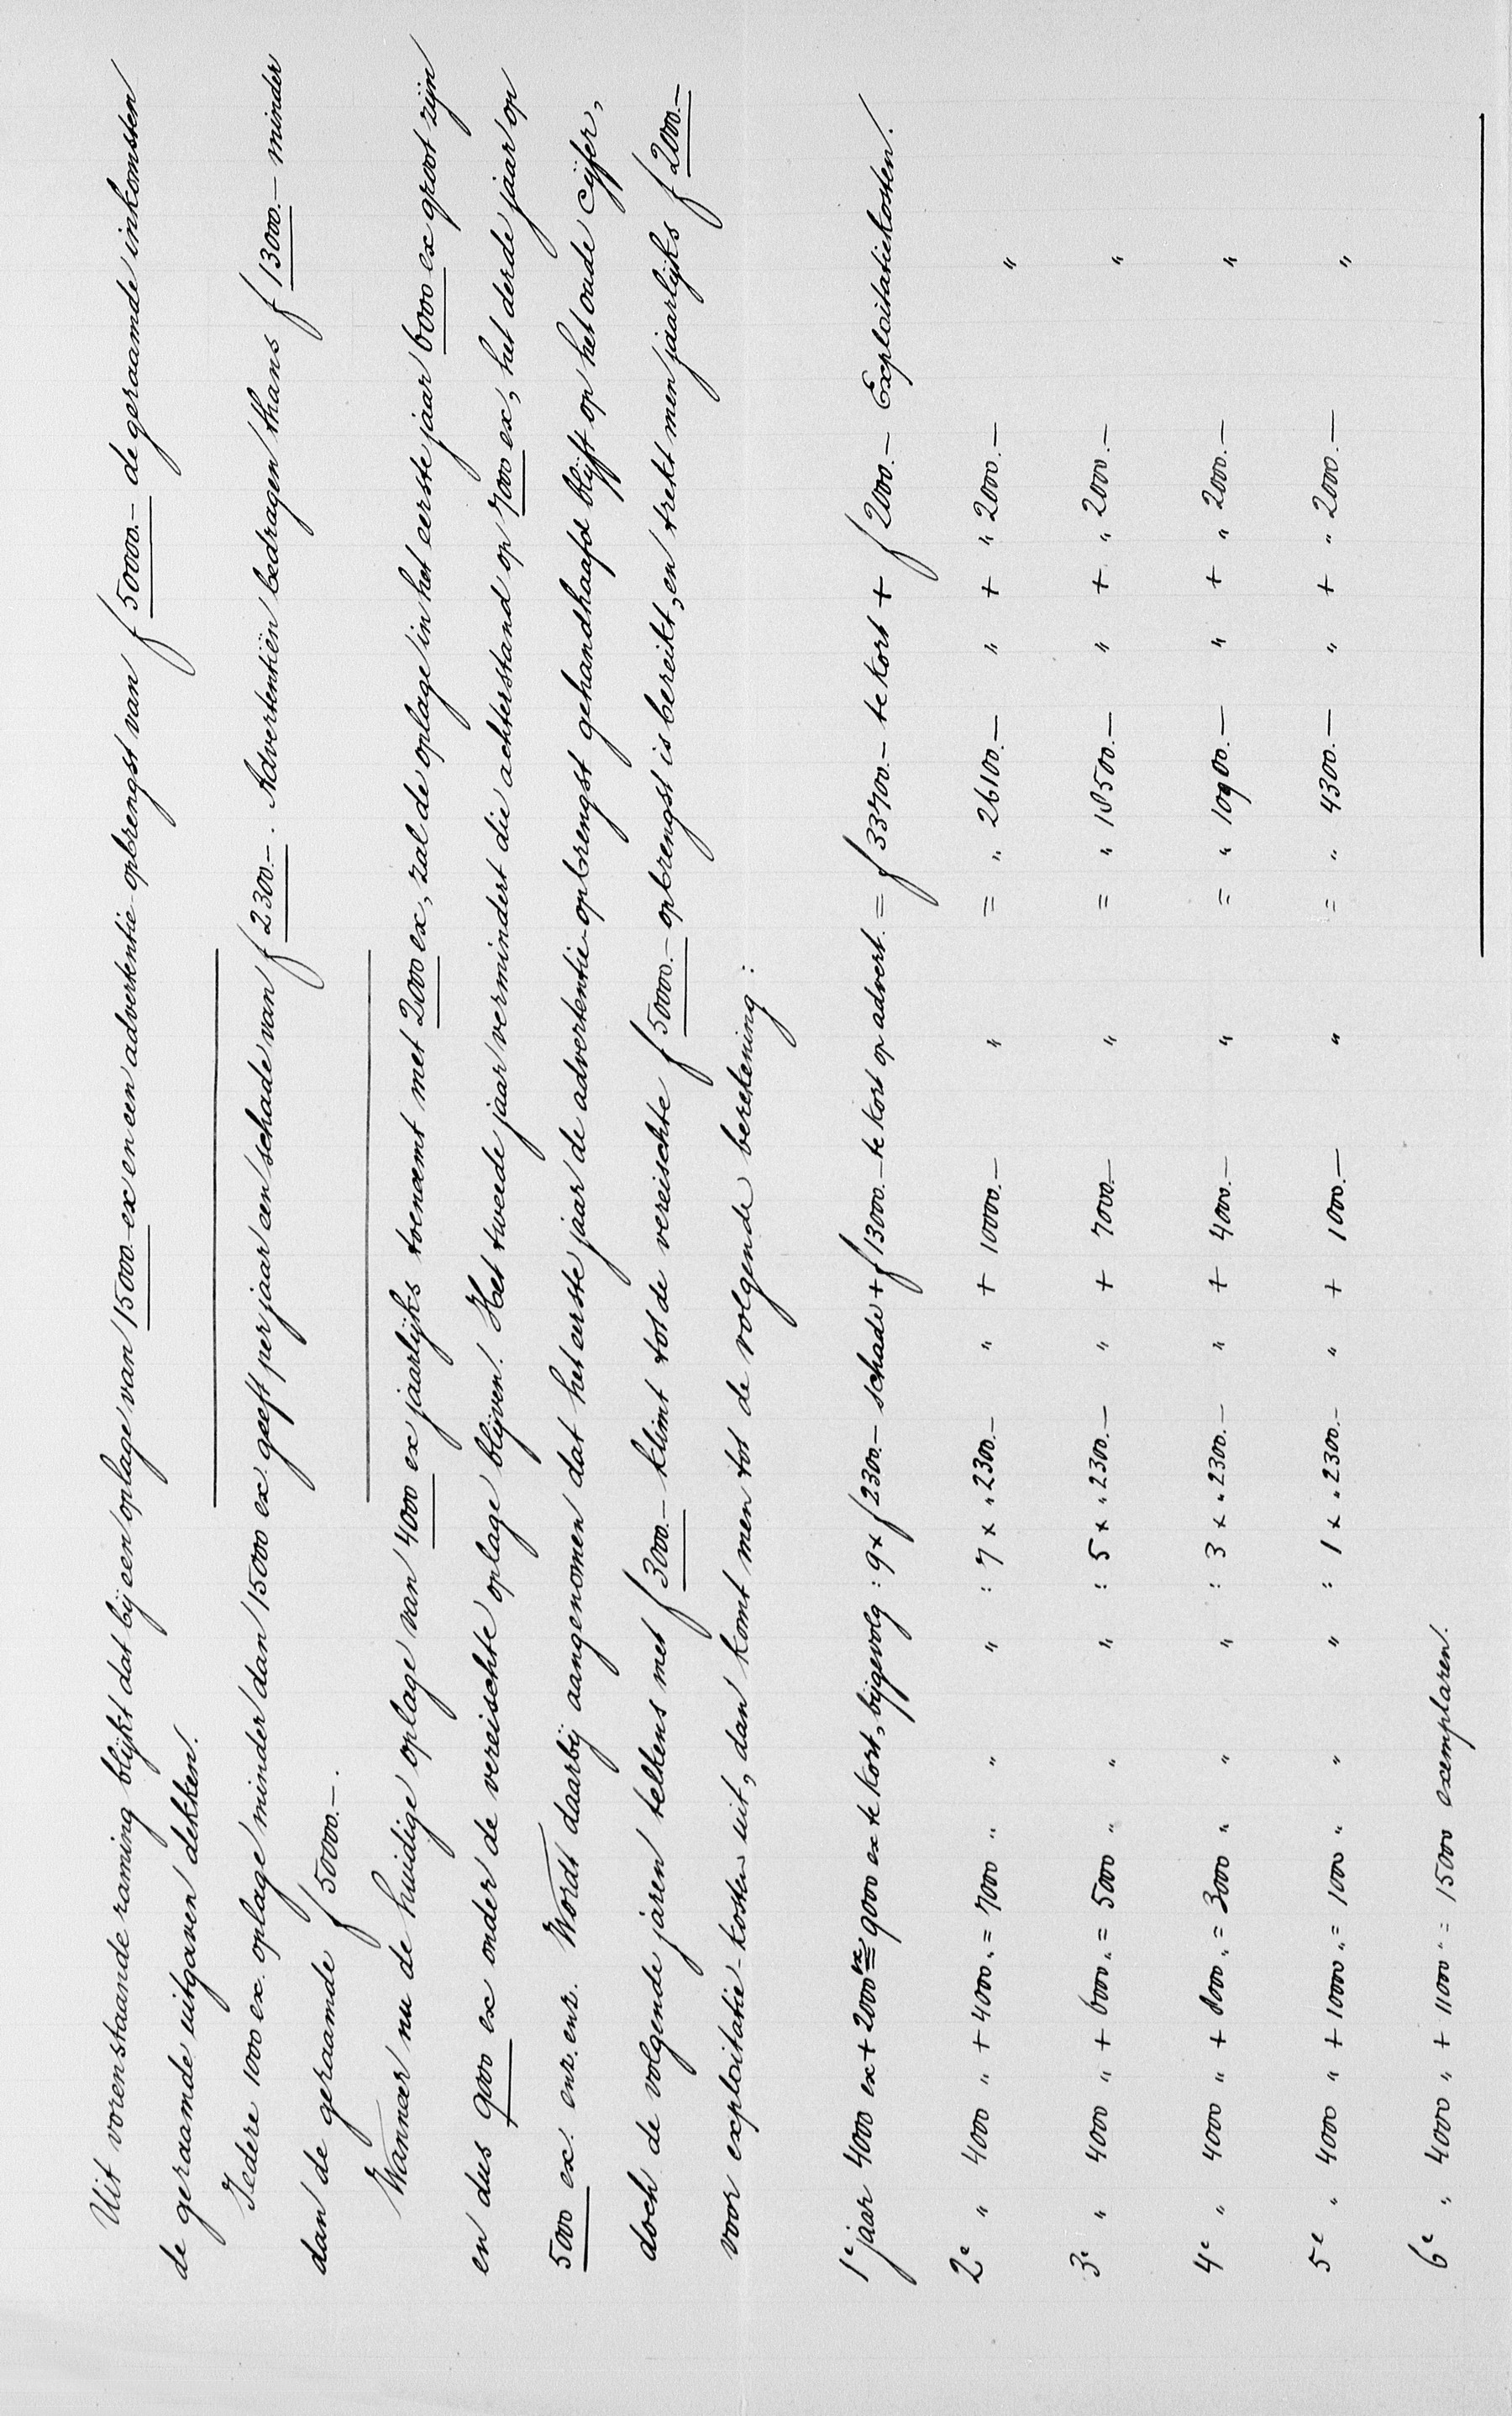 Uit vorenstaande raming blijkt dat bij een oplage van 15000 ex en een advertentie-opbrengst van f 50000.- de geraamde inkomsten
de geraamde uitgaven dekken.
Iedere 1000 ex. oplage minder dan 15000 ex geeft per jaar een schade van f 2300.-. Advertentiën bedragen thans f 13000.- minder
dan de geraamde f 50000.-.
Wanneer nu de huidige oplage van 4000 ex jaarlijks toeneemt met 2000 ex, zal de oplage in het eerste jaar 6000 ex groot zijn
en dus 9000 ex onder de vereischte oplage blijven. Het tweede jaar vermindert die achterstand op 7000 ex, het derde jaar op
5000 ex. enz. enz. Wordt daarbij aangenomen dat het eerste jaar de advertentie-opbrengst gehandhaafd blijft op het oude cijfer,
doch de volgende jaren telkens met f 3000.- klimt tot de vereischte f 50000.- opbrengst is bereikt, en trekt men jaarlijks f 2000.-
voor exploitatie-kosten uit, dan komt men tot de volgende berekening:
1e jaar 4000 ex + 2000 ex = 9000 ex te kort, bijgevolg: 9 x f 2300.- schade + f 13000.- te kort op advert. = f 33700.- te kort + f 2000.- Exploitatiekosten.
2e " 4000 " + 4000 " = 7000 " " " : 7 x " 2300.- " + 10000.- " = " 26100.- " + " 2000.- "
3e " 4000 " + 6000 " = 5000 " " " : 5 x " 2300.- " + 7000.- " = " 18500.- " + " 2000.- "
4e " 4000 " + 8000 " = 3000 " " " : 3 x " 2300.- " + 4000.- " = " 10900.- " + " 2000.- "
5e " 4000 " + 10000 " = 1000 " " " : 1 x " 2300.- " + 1000.- " = " 4300.- " + " 2000.- "
6e " 4000 " + 11000 " = 15000 exemplaren.